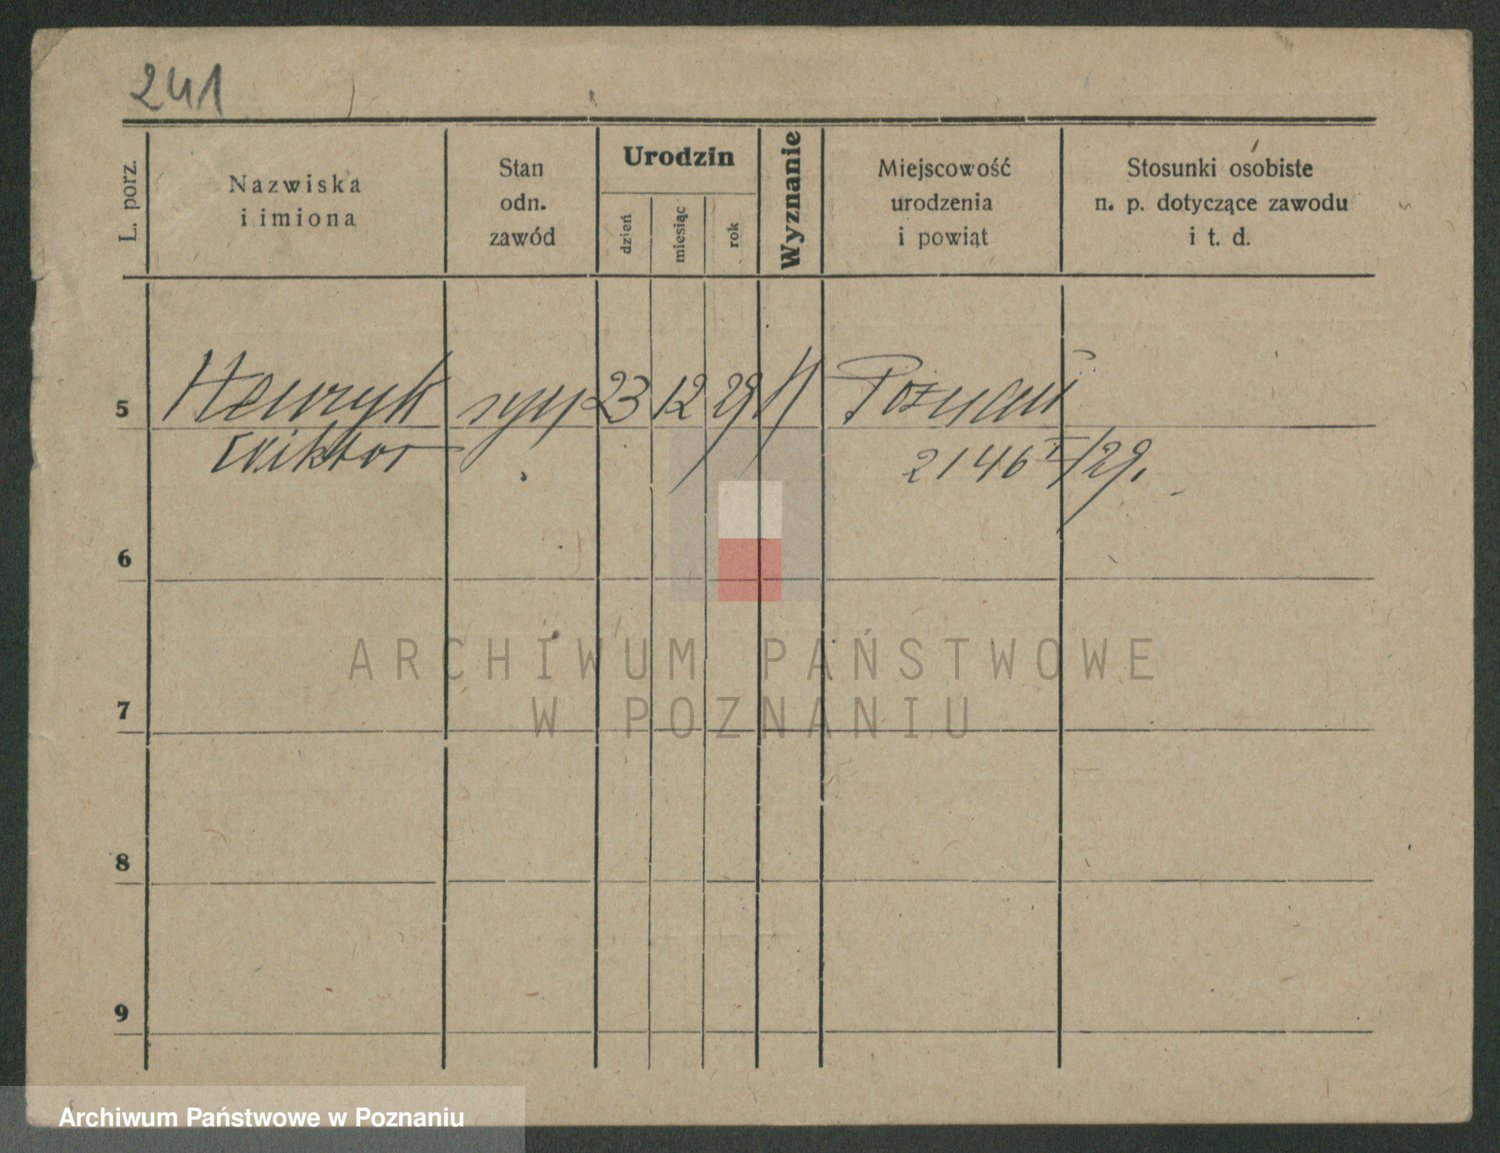 241
L. porz.
Nazwiska
i imiona
Stan
odn.
zawód
Urodzin
dzień
miesiąc
rok
Wyznanie
Miejscowość
urodzenia
i powiąt
Stosunki osobiste
n. p. dotyczące zawodu
i t. d.
5 Henryk syn 23 12 29 Poznań
Wiktor 2146 I/29.
6
7
8
9
ARCHIWUM PAŃSTWOWE
W POZNANIU
Archiwum Państwowe w Poznaniu